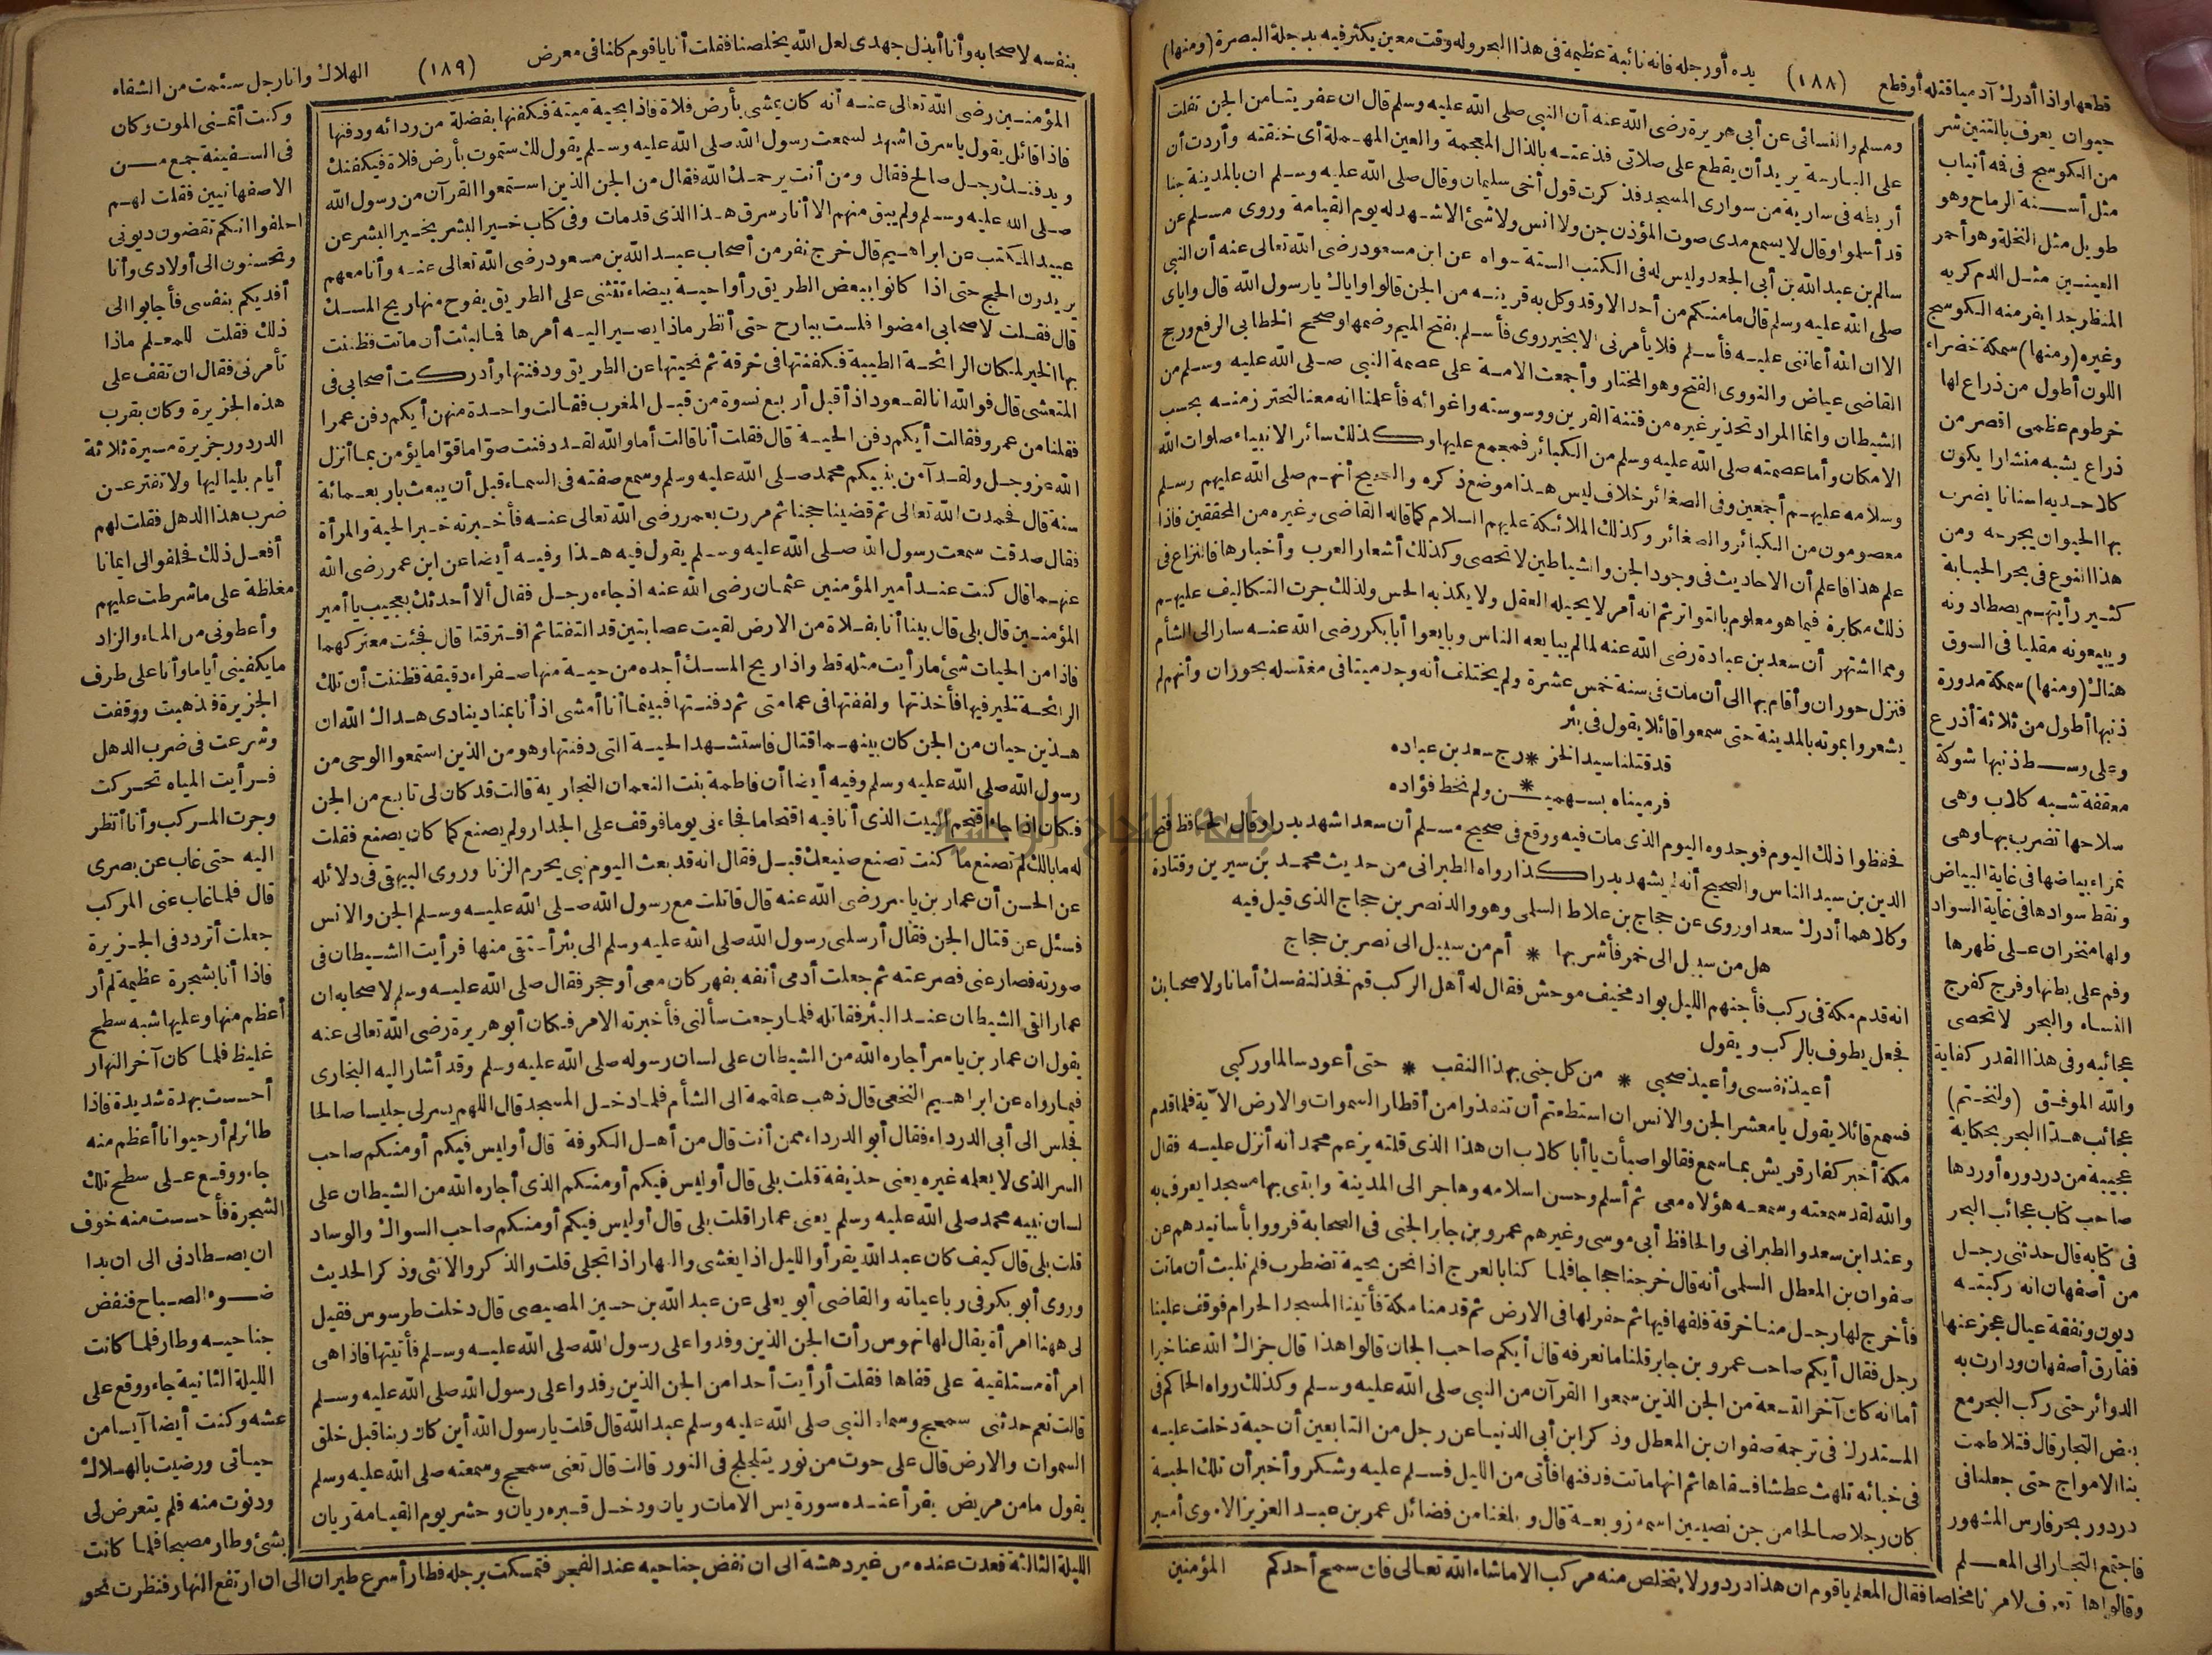 قطعها واذا أدرك آدميا قتله أو قطع (١٨٨) يده أو رجله فانه نائبة عظيمة فى هذا البحر وله وقت معين يكثر فيه بدجلة البصرة (ومنها)
حيوان يعرف بالتنين شر
من الكوسج فى فه أنياب
مثل أسنة الرماح وهو
طويل مثل النخلة وهو أحمر
العينين مثل الدم كريه
المنظر جدا يفر منه الكوسج
وغيره (ومنها) سمكة خضراء
اللون أطول من ذراع لها
خرطوم عظمى اقصر من
ذراع يشبه منشارا يكون
كلا حديه اسنانا يضرب
بها الحيوان يجرحه ومن
هذا النوع فى بحر الحبابة
كثير رأيتهم يصطادونه
ويبيعونه مقليا فى السوق
هناك (ومنها) سمكة مدورة
ذنبها أطول من ثلاثة أذرع
وعلى وسط ذنبها شوكة
معقفة شبه كلاب وهى
سلاحها تضرب بها وهى
نمراء بياضها فى غاية البياض
ونقط سوادها فى غاية السواد
ولها منخران على ظهرها
وفم على بطنها وفرج كفرج
النساء والبحر لا تحصى
عجائبه وفى هذا القدر كفاية
والله الموفق (ولنختم)
عجائب هذا البحر بحكاية
عجيبة من دردوره أوردها
صاحب كتاب عجائب البحر
فى كتابه قال حدثنى رجل
من أصفهان انه ركبته
ديون ونفقة عيال عجز عنها
ففارق أصفهان ودارت به
الدوائر حتى ركب البحر مع
بعض التجار قال فتلاطمت
بنا الامواج حتى جعلنا فى
دردور بحر فارس المشهور
فاجتمع التجار الى المعلم
ومسلم والنسائى عن أبى هريرة رضى الله عنه أن النبى صلى الله عليه وسلم قال ان عفريتا من الجن تفلت
على البارحة يريد أن يقطع على صلاتى فذعته بالذال المعجمة والعين المهملة أى خنقته وأردت أن
أربطه فى سارية من سوارى المسجد فذكرت قول أخى سليمان وقال صلى الله عليه وسلم ان بالمدينة جنا
قد أسلموا وقال لا يسمع مدى صوت المؤذن جن ولا انس ولا شئ الا شهد له يوم القيامة وروى مسلم عن
سالم بن عبد الله بن أبى الجعد وليس له فى الكتب الستة سواه عن ابن مسعود رضى الله تعالى عنه أن النبى
صلى الله عليه وسلم قال ما منكم من أحد الا وقد وكل به قرينه من الجن قالوا واياك يا رسول الله قال واياى
الا ان الله أعاننى عليه فأسلم فلا يأمرنى الا بخير روى فأسلم بفتح الميم وضمها وصحح الخطابى الرفع ورجح
القاضى عياض والنووى الفتح وهو المختار وأجمعت الامة على عصمة النبى صلى الله عليه وسلم من
الشيطان وانما المراد تحذير غيره من فتنة القرين ووسوسته واغوائه فأعلمنا انه معنا لنحترز منه بحسب
الامكان وأما عصمته صلى الله عليه وسلم من الكبائر فمجمع عليها وكذلك سائر الانبياء صلوات الله
وسلامه عليهم أجمعين وفى الصغائر خلاف ليس هذا موضع ذكره والصحيح أنهم صلى الله عليهم وسلم
معصومون من الكبائر والصغائر وكذلك الملائكة عليهم السلام كما قاله القاضى وغيره من المحققين فاذا
علم هذا فاعلم أن الاحاديث فى وجود الجن والشياطين لا تحصى وكذلك أشعار العرب وأخبارها فالنزاع فى
ذلك مكابرة فيما هو معلوم بالتواتر ثم انه أمر لا يحيله العقل ولا يكذبه الحس ولذلك جرت التكاليف عليهم
ومما اشتهر أن سعد بن عبادة رضى الله عنه لما لم يبايعه الناس وبايعوا أبا بكر رضى الله عنه سار الى الشأم
فنزل حوران وأقام بها الى أن مات فى سنة خمس عشرة ولم يختلف أنه وجد ميتا فى مغتسله بحوران وأنهم لم
يشعروا بموته بالمدينة حتى سمعوا قائلا يقول فى بئر
قد قتلنا سيد الخز * رج سعد بن عباده
فرميناه بسهمين * ن ولم نخط فؤاده
فحفظوا ذلك اليوم فوجدوه اليوم الذى مات فيه ووقع فى صحيح مسلم أن سعدا شهد بدرا وقال الحافظ فتح
الدين بن سيد الناس والصحيح أنه لم يشهد بدرا كذا رواه الطبرانى من حديث محمد بن سيرين وقتادة
وكلاهما أدرك سعدا وروى عن حجاج بن علاط السلمى وهو والد نصر بن حجاج الذى قيل فيه
هل من سبيل الى خمر فأشربها * أم من سبيل الى نصر بن حجاج
انه قدم مكة فى ركب فأجنهم الليل بواد مخيف موحش فقال له أهل الركب قم فخذ لنفسك أمانا ولاصحابك
فجعل يطوف بالركب ويقول
أعيذ نفسى وأعيذ صحبى * من كل جنى بهذا النقب * حتى أعود سالما وركبى
فسمع قائلا يقول يا معشر الجن والانس ان استطعتم أن تنفذوا من أقطار السموات والارض الآية فلما قدم
مكة أخبر كفار قريش بما سمع فقالوا صبأت يا أبا كلاب ان هذا الذى قلته يزعم محمد أنه أنزل عليه فقال
والله لقد سمعته وسمعه هؤلاء معى ثم أسلم وحسن اسلامه وهاجر الى المدينة وابتنى بها مسجدا يعرف به
وعند ابن سعد والطبرانى والحافظ أبى موسى وغيرهم عمرو بن جابر الجنى فى الصحابة فرووا بأسانيدهم عن
صفوان بن المعطل السلمى أنه قال خرجنا حجاجا فلما كنا بالعرج اذا نحن بحية تضطرب فلم نلبث أن ماتت
فأخرج لها رجل منا خرقة فلفها فيها ثم حفر لها فى الارض ثم قدمنا مكة فأتينا المسجد الحرام فوقف علينا
رجل فقال أيكم صاحب عمرو بن جابر قلنا ما نعرفه قال أيكم صاحب الجان قالوا هذا قال جزاك الله عنا خيرا
أما انه كان آخر التسعة من الجن الذين سمعوا القرآن من النبى صلى الله عليه وسلم وكذلك رواه الحاكم فى
المستدرك فى ترجمة صفوان بن المعطل وذكر ابن أبى الدنيا عن رجل من التابعين أن حية دخلت عليه
فى خبائه تلهث عطشا فسقاها ثم انها ماتت فدفنها فأتى من الليل فسلم عليه وشكر وأخبر أن تلك الحية
كان رجلا صالحا من جن نصيبين اسمه زوبعة قال وبلغنا من فضائل عمر بن عبد العزيز الاموى أمير
المؤمنين
وقالوا ها تعرف لامرنا مخلصا فقال المعلم يا قوم ان هذا دردور لا يتخلص منه مركب الا ما شاء الله تعالى فان سمح أحدكم
بنفسه لاصحابه وأنا أبذل جهدى لعل الله يخلصنا فقلت أنا يا قوم كلنا فى معرض (١٨٩) الهلاك وانا رجل سئمت من الشقاء
المؤمنين رضى الله تعالى عنه أنه كان يمشى بأرض فلاة فاذا بحية ميتة فكفنها بفضلة من ردائه ودفنها
فاذا قائل يقول يا سرق اشهد لسمعت رسول الله صلى الله عليه وسلم يقول لك ستموت بأرض فلاة فيكفنك
ويدفنك رجل صالح فقال ومن أنت يرحمك الله فقال من الجن الذين استمعوا القرآن من رسول الله
صلى الله عليه وسلم ولم يبق منهم الا أنا وسرق هذا الذى قد مات وفى كتاب خير البشر بخير البشر عن
عبيد المكتب عن ابراهيم قال خرج نفر من أصحاب عبد الله بن مسعود رضى الله تعالى عنه وأنا معهم
يريدون الحج حتى اذا كانوا ببعض الطريق رأوا حية بيضاء تتثنى على الطريق يفوح منها ريح المسك
قال فقلت لاصحابى امضوا فلست ببارح حتى أنظر ماذا يصير اليه أمرها فما لبثت أن ماتت فظننت
بها الخير لمكان الرائحة الطيبة فكفنتها فى خرقة ثم نحيتها عن الطريق ودفنتها وأدركت أصحابى فى
المتعشى قال فوالله انا لقعود اذ أقبل أربع نسوة من قبل المغرب فقالت واحدة منهن أيكم دفن عمرا
فقلنا من عمرو فقالت أيكم دفن الحية قال فقلت أنا قالت أما والله لقد دفنت صواما قواما يؤمن بما أنزل
الله عز وجل ولقد آمن بنبيكم محمد صلى الله عليه وسلم وسمع صفته فى السماء قبل أن يبعث باربعمائة
سنة قال فحمدت الله تعالى ثم قضينا حجنا ثم مررت بعمر رضى الله تعالى عنه فأخبرته خبر الحية والمرأة
فقال صدقت سمعت رسول الله صلى الله عليه وسلم يقول فيه هذا وفيه أيضا عن ابن عمر رضى الله
عنهما قال كنت عند أمير المؤمنين عثمان رضى الله عنه اذ جاءه رجل فقال ألا أحدثك بعجيب يا أمير
المؤمنين قال بلى قال بينا أنا بفلاة من الارض لقيت عصابتين قد التقتا ثم افترقتا قال فجئت معتركهما
فاذا من الحيات شئ ما رأيت مثله قط واذا ريح المسك أجده من حية منها صفراء دقيقة فظننت أن تلك
الرائحة لخير فيها فأخذتها ولففتها فى عمامتى ثم دفنتها فبينما أنا أمشى اذ أنا بمناد ينادى هداك الله ان
هذين حيان من الجن كان بينهما قتال فاستشهد الحية التى دفنتها وهو من الذين استمعوا الوحى من
رسول الله صلى الله عليه وسلم وفيه أيضا أن فاطمة بنت النعمان النجارية قالت قد كان لى تابع من الجن
فكان اذا جاء اقتحم البيت الذى أنا فيه اقتحاما فجاءنى يوما فوقف على الجدار ولم يصنع كما كان يصنع فقلت
له ما بالك لم تصنع ما كنت تصنع صنيعك قبل فقال انه قد بعث اليوم نبى يحرم الزنا وروى البيهقى فى دلائله
عن الحسن أن عمار بن ياسر رضى الله عنه قال قاتلت مع رسول الله صلى الله عليه وسلم الجن والانس
فسئل عن قتال الجن فقال أرسلنى رسول الله صلى الله عليه وسلم الى بئر أستقى منها فرأيت الشيطان فى
صورته فصارعنى فصرعته ثم جعلت أدمى أنفه بفهر كان معى أو حجر فقال صلى الله عليه وسلم لاصحابه ان
عمارا لقى الشيطان عند البئر فقاتله فلما رجعت سألنى فأخبرته الامر فكان أبو هريرة رضى الله تعالى عنه
يقول ان عمار بن ياسر أجاره الله من الشيطان على لسان رسوله صلى الله عليه وسلم وقد أشار اليه البخارى
فيما رواه عن ابراهيم النخعى قال ذهب علقمة الى الشأم فلما دخل المسجد قال اللهم يسر لى جليسا صالحا
فجلس الى أبى الدرداء فقال أبو الدرداء ممن أنت قال من أهل الكوفة قال أوليس فيكم أو منكم صاحب
السر الذى لا يعلمه غيره يعنى حذيفة قلت بلى قال أوليس فيكم أو منكم الذى أجاره الله من الشيطان على
لسان نبيه محمد صلى الله عليه وسلم يعنى عمارا قلت بلى قال أوليس فيكم أو منكم صاحب السواك والوساد
قلت بلى قال كيف كان عبد الله يقرأ والليل اذا يغشى والنهار اذا تجلى قلت والذكر والانثى وذكر الحديث
وروى أبو بكر فى رباعياته والقاضى أبو يعلى عن عبد الله بن حسين المصيصى قال دخلت طرسوس فقيل
لى ههنا امرأة يقال لها نهوس رأت الجن الذين وفدوا على رسول الله صلى الله عليه وسلم فأتيتها فاذا هى
امرأة مستلقية على قفاها فقلت أرأيت أحدا من الجن الذين وفدوا على رسول الله صلى الله عليه وسلم
قالت نعم حدثنى سمحج وسماه النبى صلى الله عليه وسلم عبد الله قال قلت يا رسول الله أين كان ربنا قبل خلق
السموات والارض قال على حوت من نور يتلجلج فى النور قالت قال تعنى سمحج وسمعته صلى الله عليه وسلم
يقول ما من مريض يقرأ عنده سورة يس الا مات ريان ودخل قبره ريان وحشر يوم القيامة ريان
وكنت أتمنى الموت وكان
فى السفينة جمع من
الاصفهانيين فقلت لهم
احلفوا انكم تقضون ديونى
وتحسنون الى أولادى وأنا
أفديكم بنفسى فأجابوا الى
ذلك فقلت للمعلم ماذا
تأمرنى فقال ان تقف على
هذه الجزيرة وكان بقرب
الدردور جزيرة مسيرة ثلاثة
أيام بلياليها ولا تفتر عن
ضرب هذا الدهل فقلت لهم
أفعل ذلك فحلفوا لى ايمانا
مغلظة على ما شرطت عليهم
وأعطونى من الماء والزاد
ما يكفينى أياما وأنا على طرف
الجزيرة فذهبت ووقفت
وشرعت فى ضرب الدهل
فرأيت المياه تحركت
وجرت المركب وأنا أنظر
اليه حتى غاب عن بصرى
قال فلما غاب عنى المركب
جعلت أتردد فى الجزيرة
فاذا أنا بشجرة عظيمة لم أر
أعظم منها وعليها شبه سطح
غليظ فلما كان آخر النهار
أحسست بهدة شديدة فاذا
طائر لم أر حيوانا أعظم منه
جاء ووقع على سطح تلك
الشجرة فأحسست منه خوف
ان يصطادنى الى ان بدا
ضوء الصباح فنفض
جناحيه وطار فلما كانت
الليلة الثانية جاء ووقع على
عشه وكنت أيضا آيسا من
حياتى ورضيت بالهلاك
ودنوت منه فلم يتعرض لى
بشئ وطار مصبحا فلما كانت
الليلة الثالثة قعدت عنده من غير دهشة الى ان نفض جناحيه عند الفجر فتمسكت برجله فطار أسرع طيران الى ان ارتفع النهار فنظرت نحو